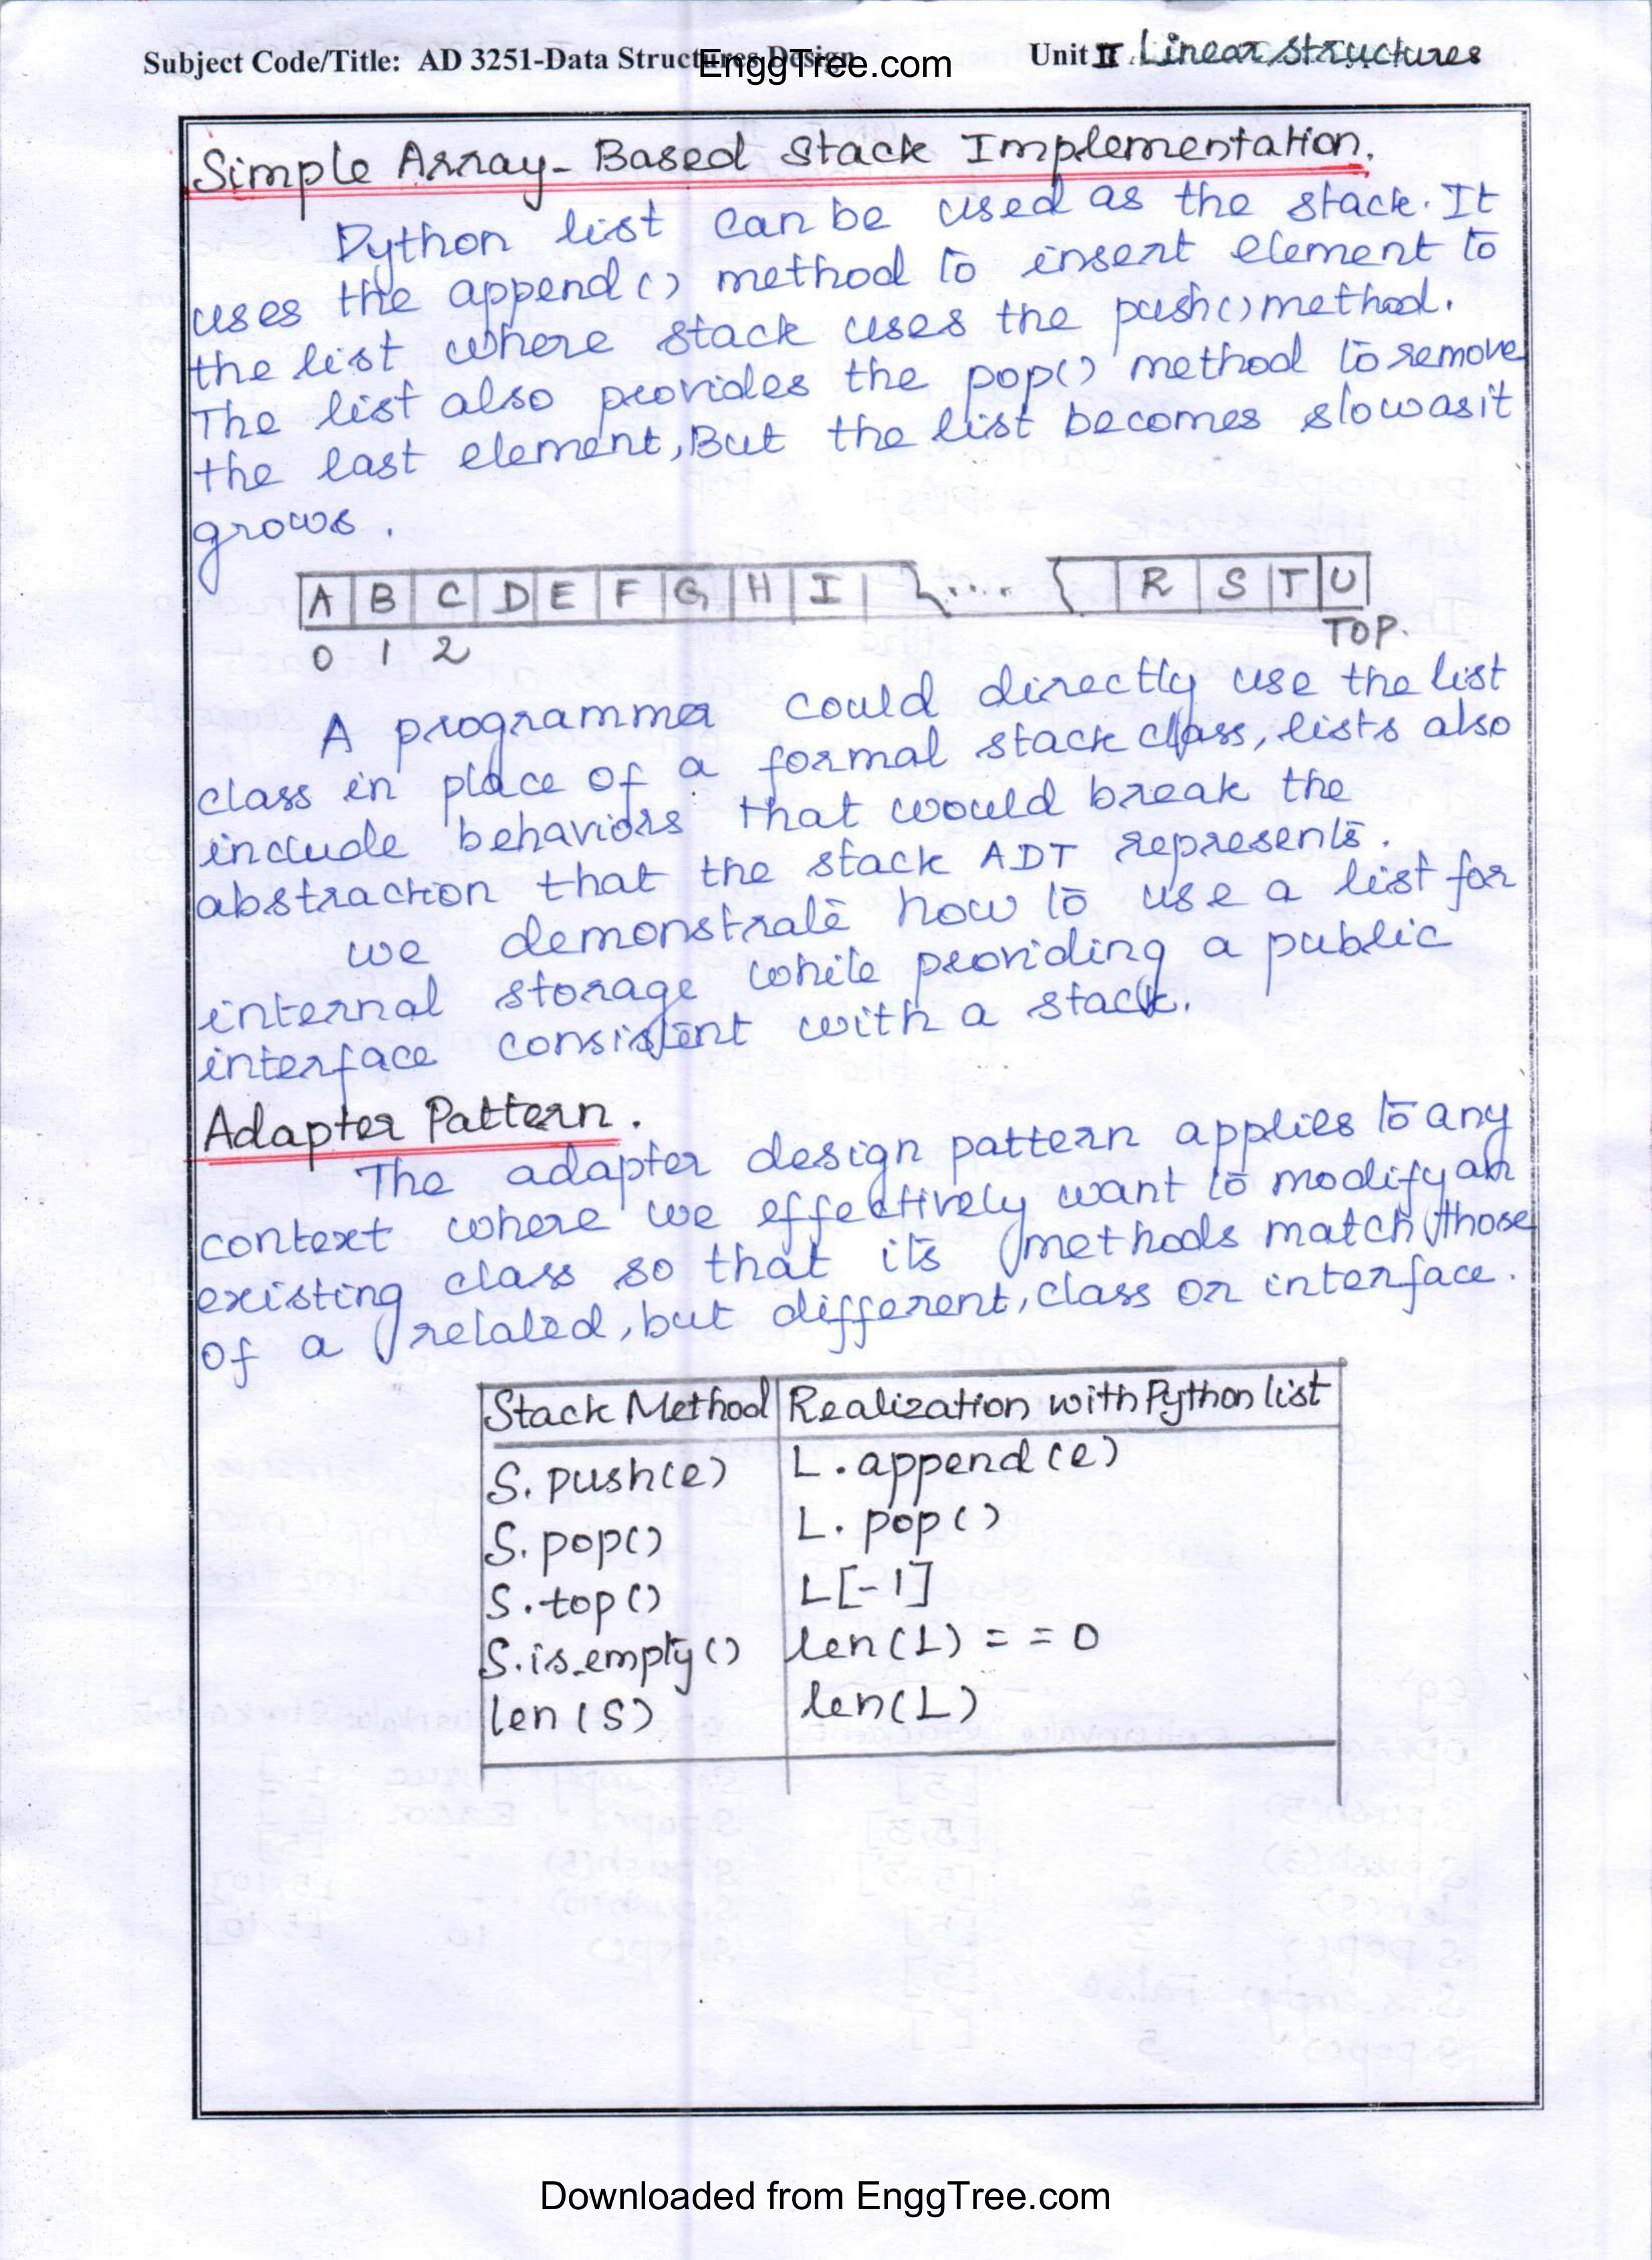 Subject Code/Title: AD 3251-Data Structures Design
EnggTree.com
Unit II Linear Structures
Simple Array-Based Stack Implementation.
Python list can be used as the stack. It
uses the append() method to insert element to
the list where stack uses the push() method.
The list also provides the pop() method to remove
the last element, But the list becomes slow as it
grows.
A B C D E F G H I .... R S T U
0 1 2 TOP.
A programmer could directly use the list
class in place of a formal stack class, lists also
include behaviors that would break the
abstraction that the stack ADT represents.
we demonstrate how to use a list for
internal storage while providing a public
interface consistent with a stack.
Adapter Pattern.
The adapter design pattern applies to any
context where we effectively want to modify an
existing class so that its methods match those
of a related, but different, class or interface.
Stack Method Realization with Python list
S.push(e) L.append(e)
S.pop() L.pop()
S.top() L[-1]
S.is_empty() len(L) = = 0
len(S) len(L)
Downloaded from EnggTree.com